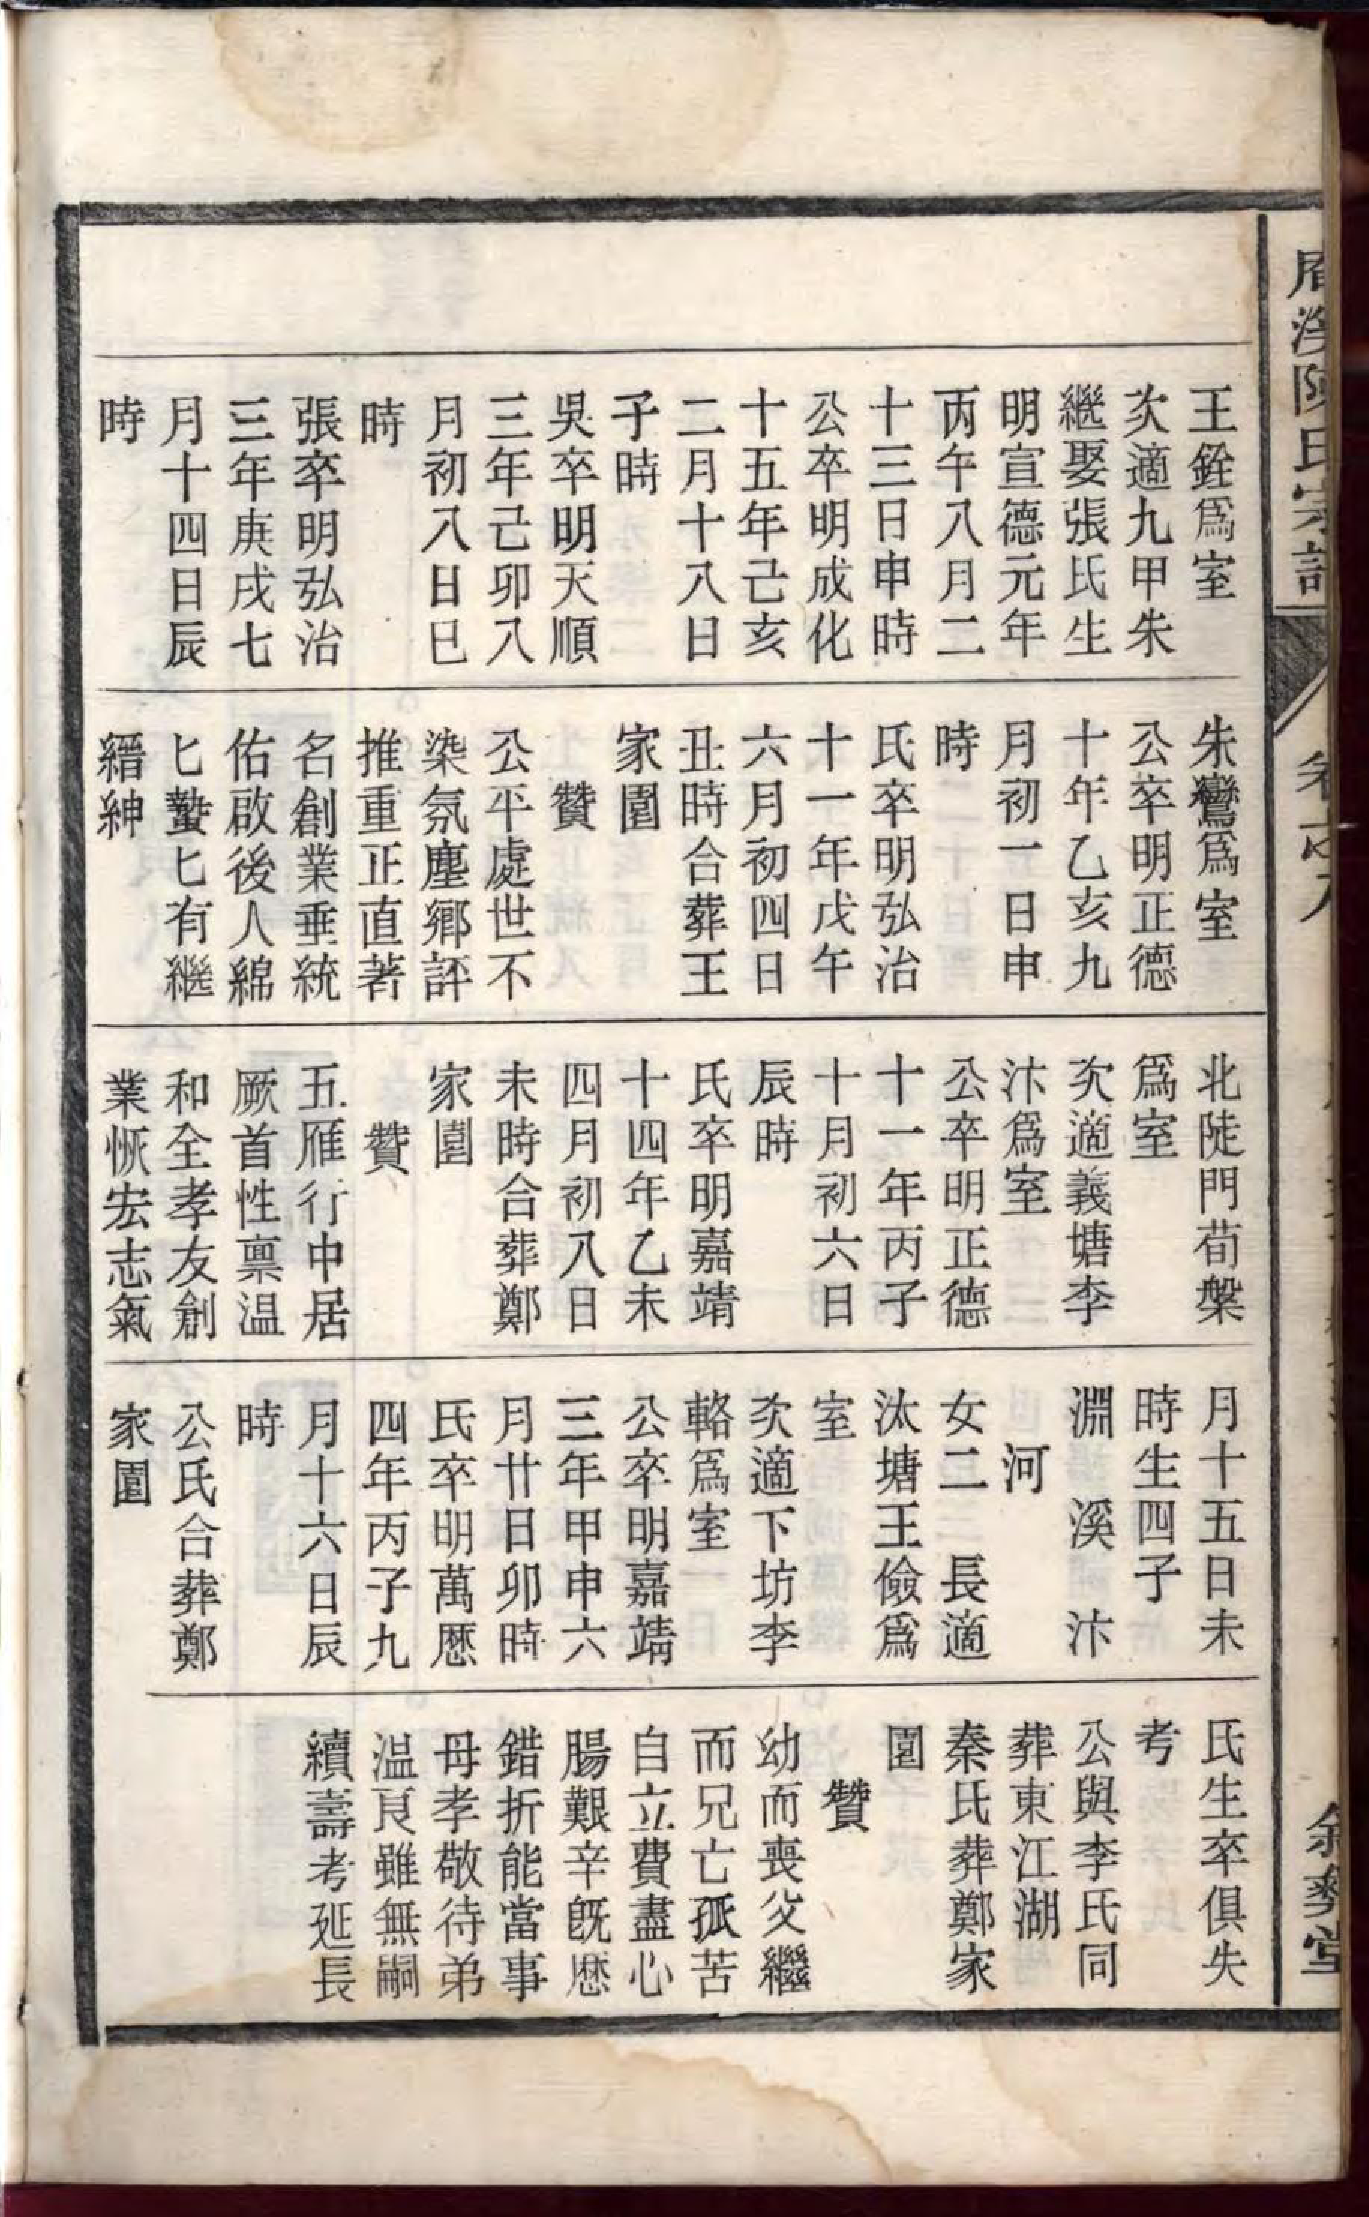 陳氏宗譜
卷之八
敘彝堂
王銓爲室
次適九甲朱
繼娶張氏生
明宣德元年
丙午八月二
十三日申時
公卒明成化
十五年己亥
二月十八日
子時
吳卒明天順
三年己卯八
月初八日巳
時
張卒明弘治
三年庚戌七
月十四日辰
時
朱鸞爲室
公卒明正德
十年乙亥九
月初一日申
時
氏卒明弘治
十一年戊午
六月初四日
丑時合葬王
家園
贊
公平處世不
染氛塵鄉評
推重正直著
名創業垂統
佑啟後人綿
匕蟄匕有繼
縉紳
北陡門荀槃
爲室
次適義塘李
汴爲室
公卒明正德
十一年丙子
十月初六日
辰時
氏卒明嘉靖
十四年乙未
四月初八日
未時合葬鄭
家園
贊
五雁行中居
厥首性禀温
和全孝友創
業恢宏志氣
月十五日未
時生四子
淵 溪 汴
河
女二 長適
汰塘王儉爲
室
次適下坊李
輅爲室
公卒明嘉靖
三年甲申六
月廿日卯時
氏卒明萬厯
四年丙子九
月十六日辰
時
公氏合葬鄭
家園
氏生卒俱失
考
公與李氏同
葬東江湖
秦氏葬鄭家
園
贊
幼而喪父繼
而兄亡孤苦
自立費盡心
腸艱辛旣厯
錯折能當事
母孝敬待弟
温良雖無嗣
續壽考延長